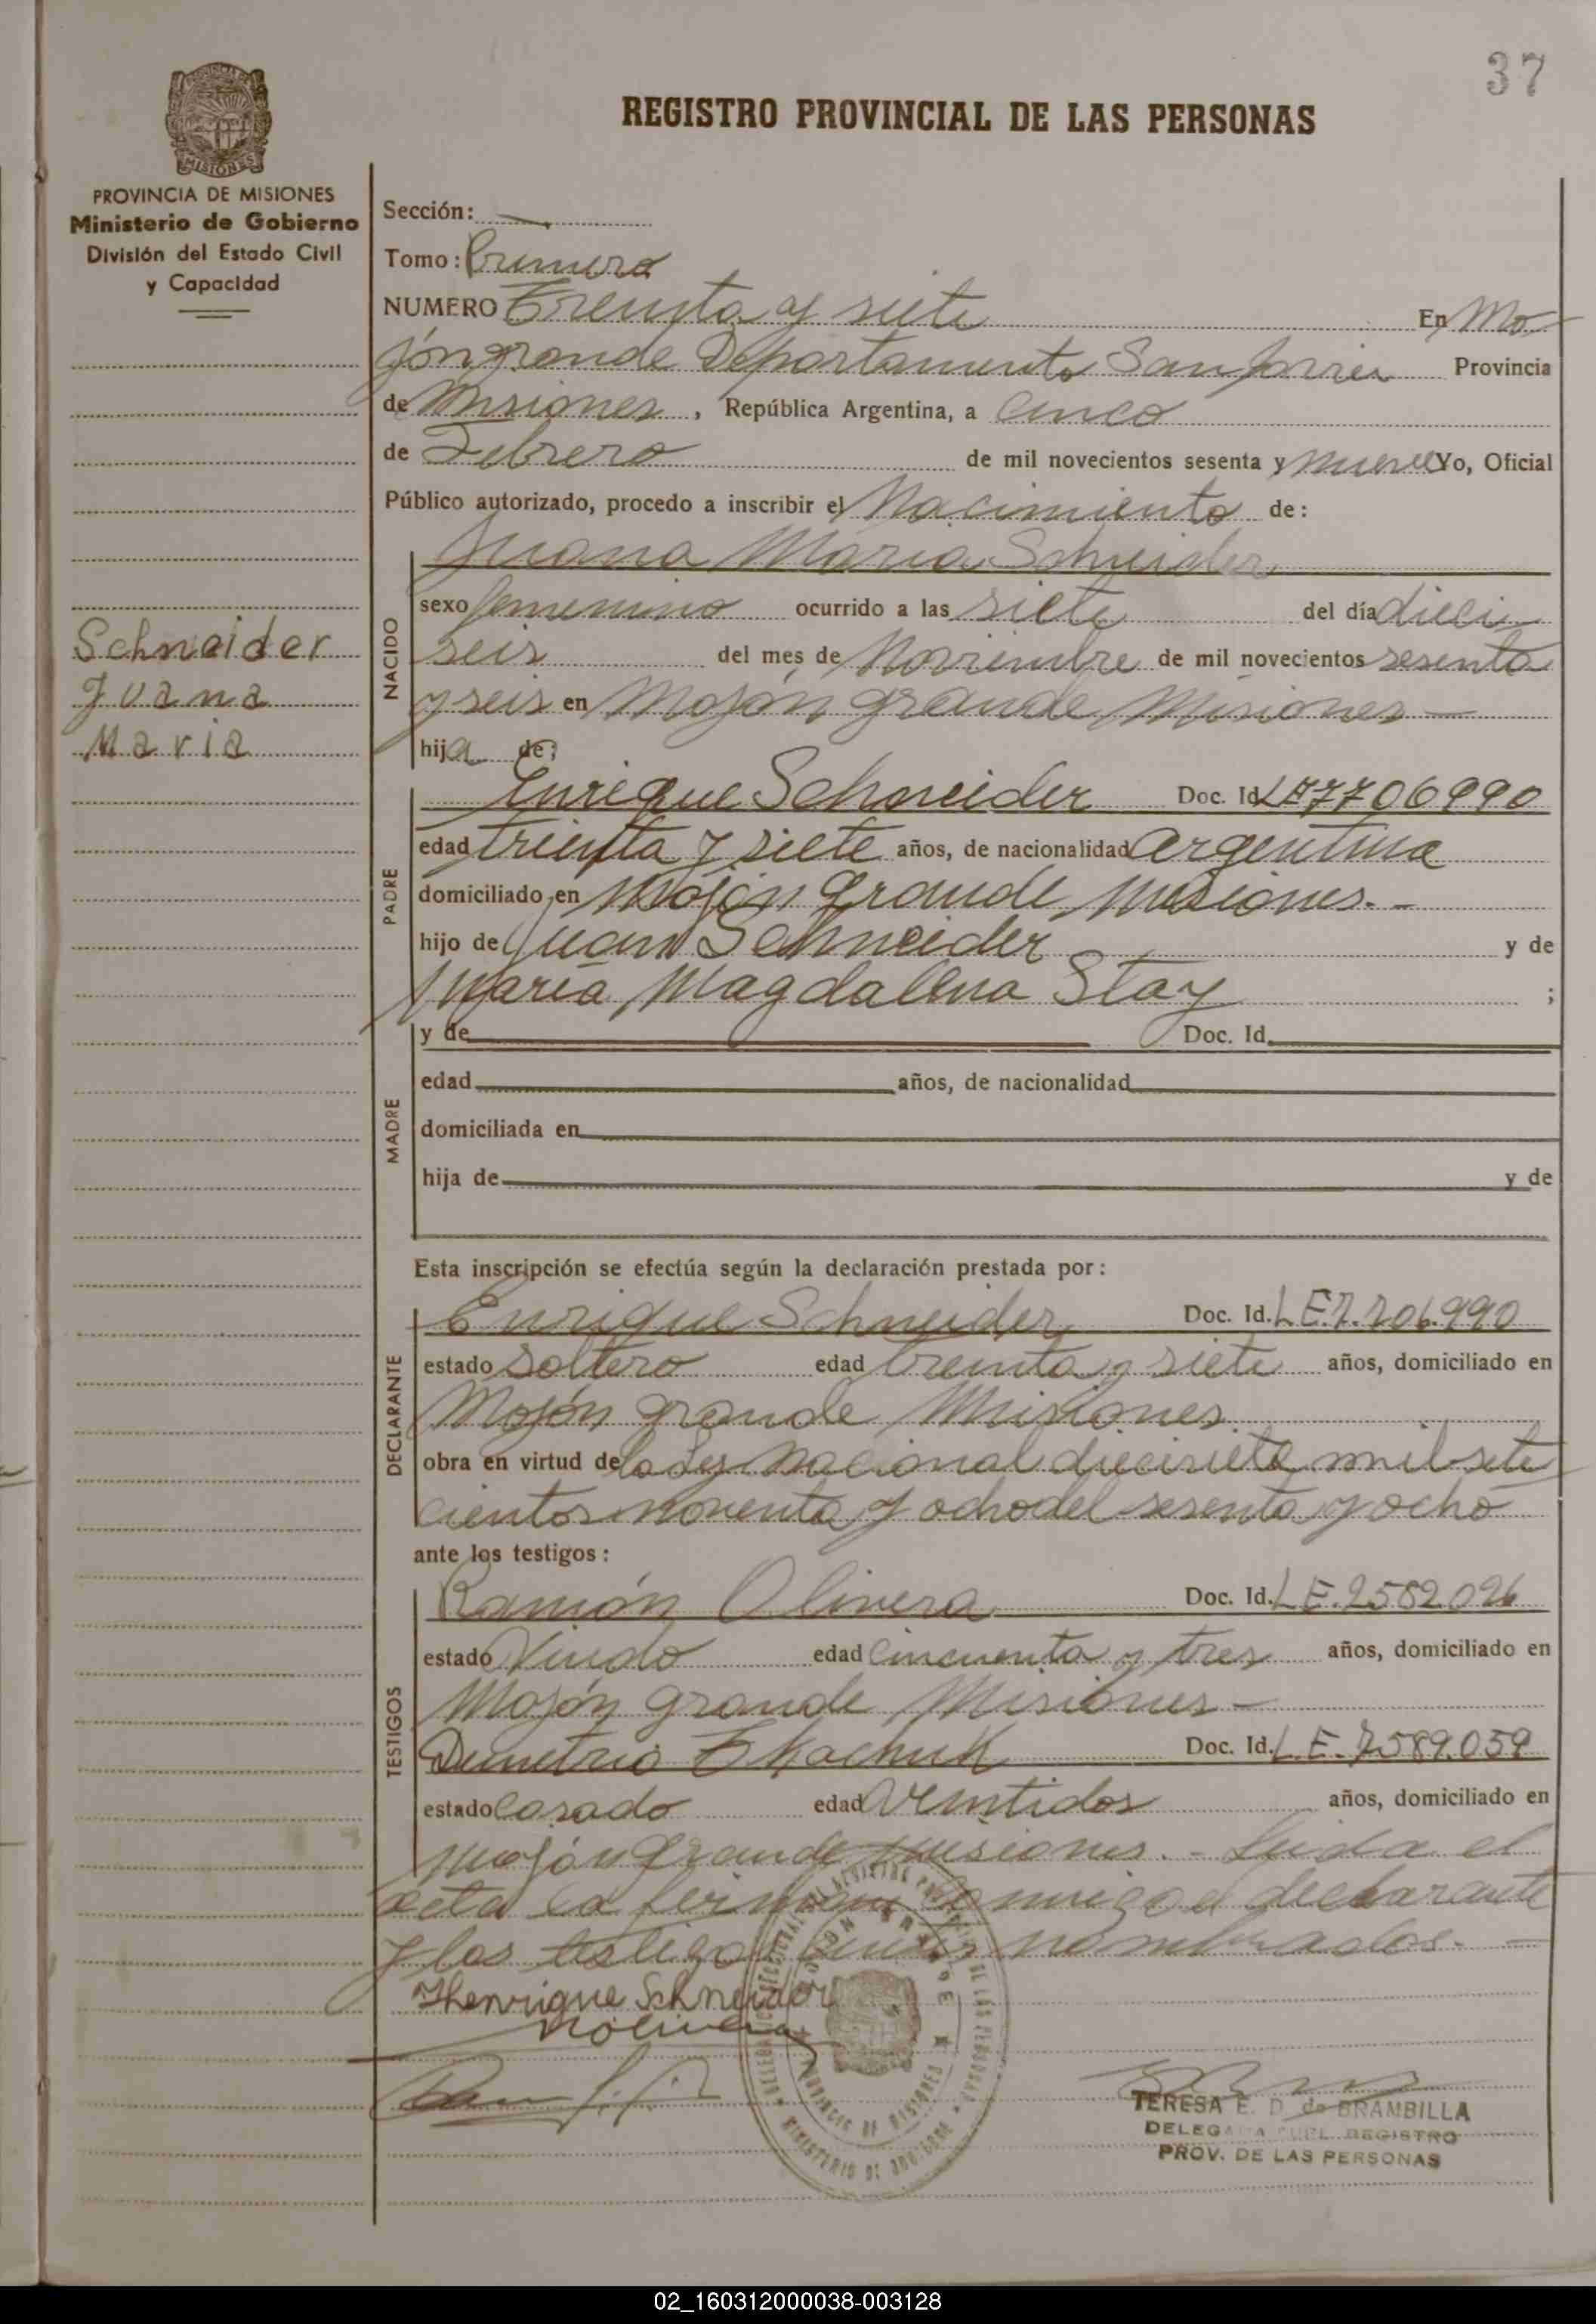 37
REGISTRO PROVINCIAL DE LAS PERSONAS
MISIONES
PROVINCIA DE MISIONES
Ministerio de Gobierno
División del Estado Civil
y Capacidad
Schneider
Juana
Maria
Sección:
Tomo: Primero
NUMERO Treinta y siete En Mo
jón grande Departamento San Javier Provincia
de Misiones, República Argentina, a Cinco
de Febrero de mil novecientos sesenta y nueve Yo, Oficial
Público autorizado, procedo a inscribir el Nacimiento de:
Juana Maria Schneider
NACIDO
sexo femenino ocurrido a las siete del día dieci
seis del mes de Noviembre de mil novecientos sesenta
y seis en Mojón grande Misiones —
hija de:
PADRE
Enrique Schneider Doc. Id. LE 7706990
edad treinta y siete años, de nacionalidad argentina
domiciliado en Mojón Grande Misiones.-
hijo de Juan Schneider y de
María Magdalena Stay ;
MADRE
y de Doc. Id.
edad años, de nacionalidad
domiciliada en
hija de y de
Esta inscripción se efectúa según la declaración prestada por:
DECLARANTE
Enrique Schneider Doc. Id. L.E. 7.706.990
estado soltero edad treinta y siete años, domiciliado en
Mojón grande Misiones
obra en virtud de la Ley Nacional diecisiete mil sete
cientos noventa y ocho del sesenta y ocho
ante los testigos:
TESTIGOS
Ramón Olivera Doc. Id. L.E. 2582026
estado Viudo edad Cincuenta y tres años, domiciliado en
Mojón grande Misiones -
Demetrio Tkachuk Doc. Id. L.E. 7589.059
estado Casado edad Veintidos años, domiciliado en
Mojón Grande Misiones.- Leida el
acta la firman conmigo el declarante
y los testigos nombrados. -
Thenrique Schneider
TERESA E. D. de BRAMBILLA
DELEGADA DEL REGISTRO
PROV. DE LAS PERSONAS
02_160312000038-003128